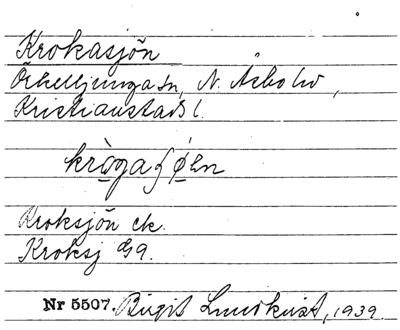 Krokasjön
Örkelljunga sn, N. Åsbo hd,
Kristianstads l.
kròga ʃǿen
Kroksjön ek.
Kroksj Ga.
Nr 5507. Birgit Lundkvist, 1939.